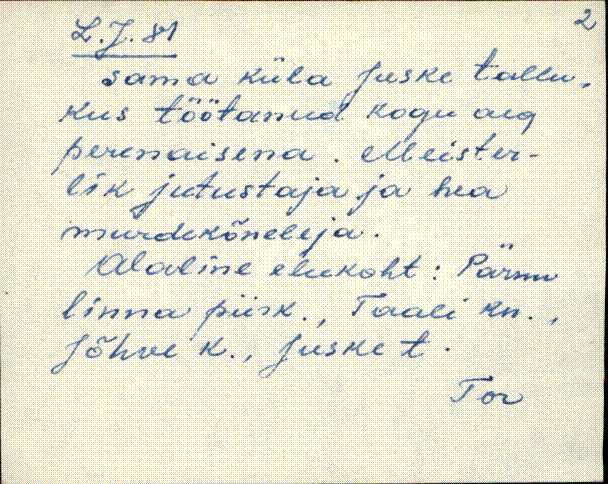 2
L.J. 81
sama küla Juske tallu,
kus töötanud kogu aeg
perenaisena. Meister-
lik jutustaja ja hea
murdekõneleja.
Alaline elukoht: Pärnu
linna piirk., Taali kn.,
Jõhve k., Juske t.
Tor